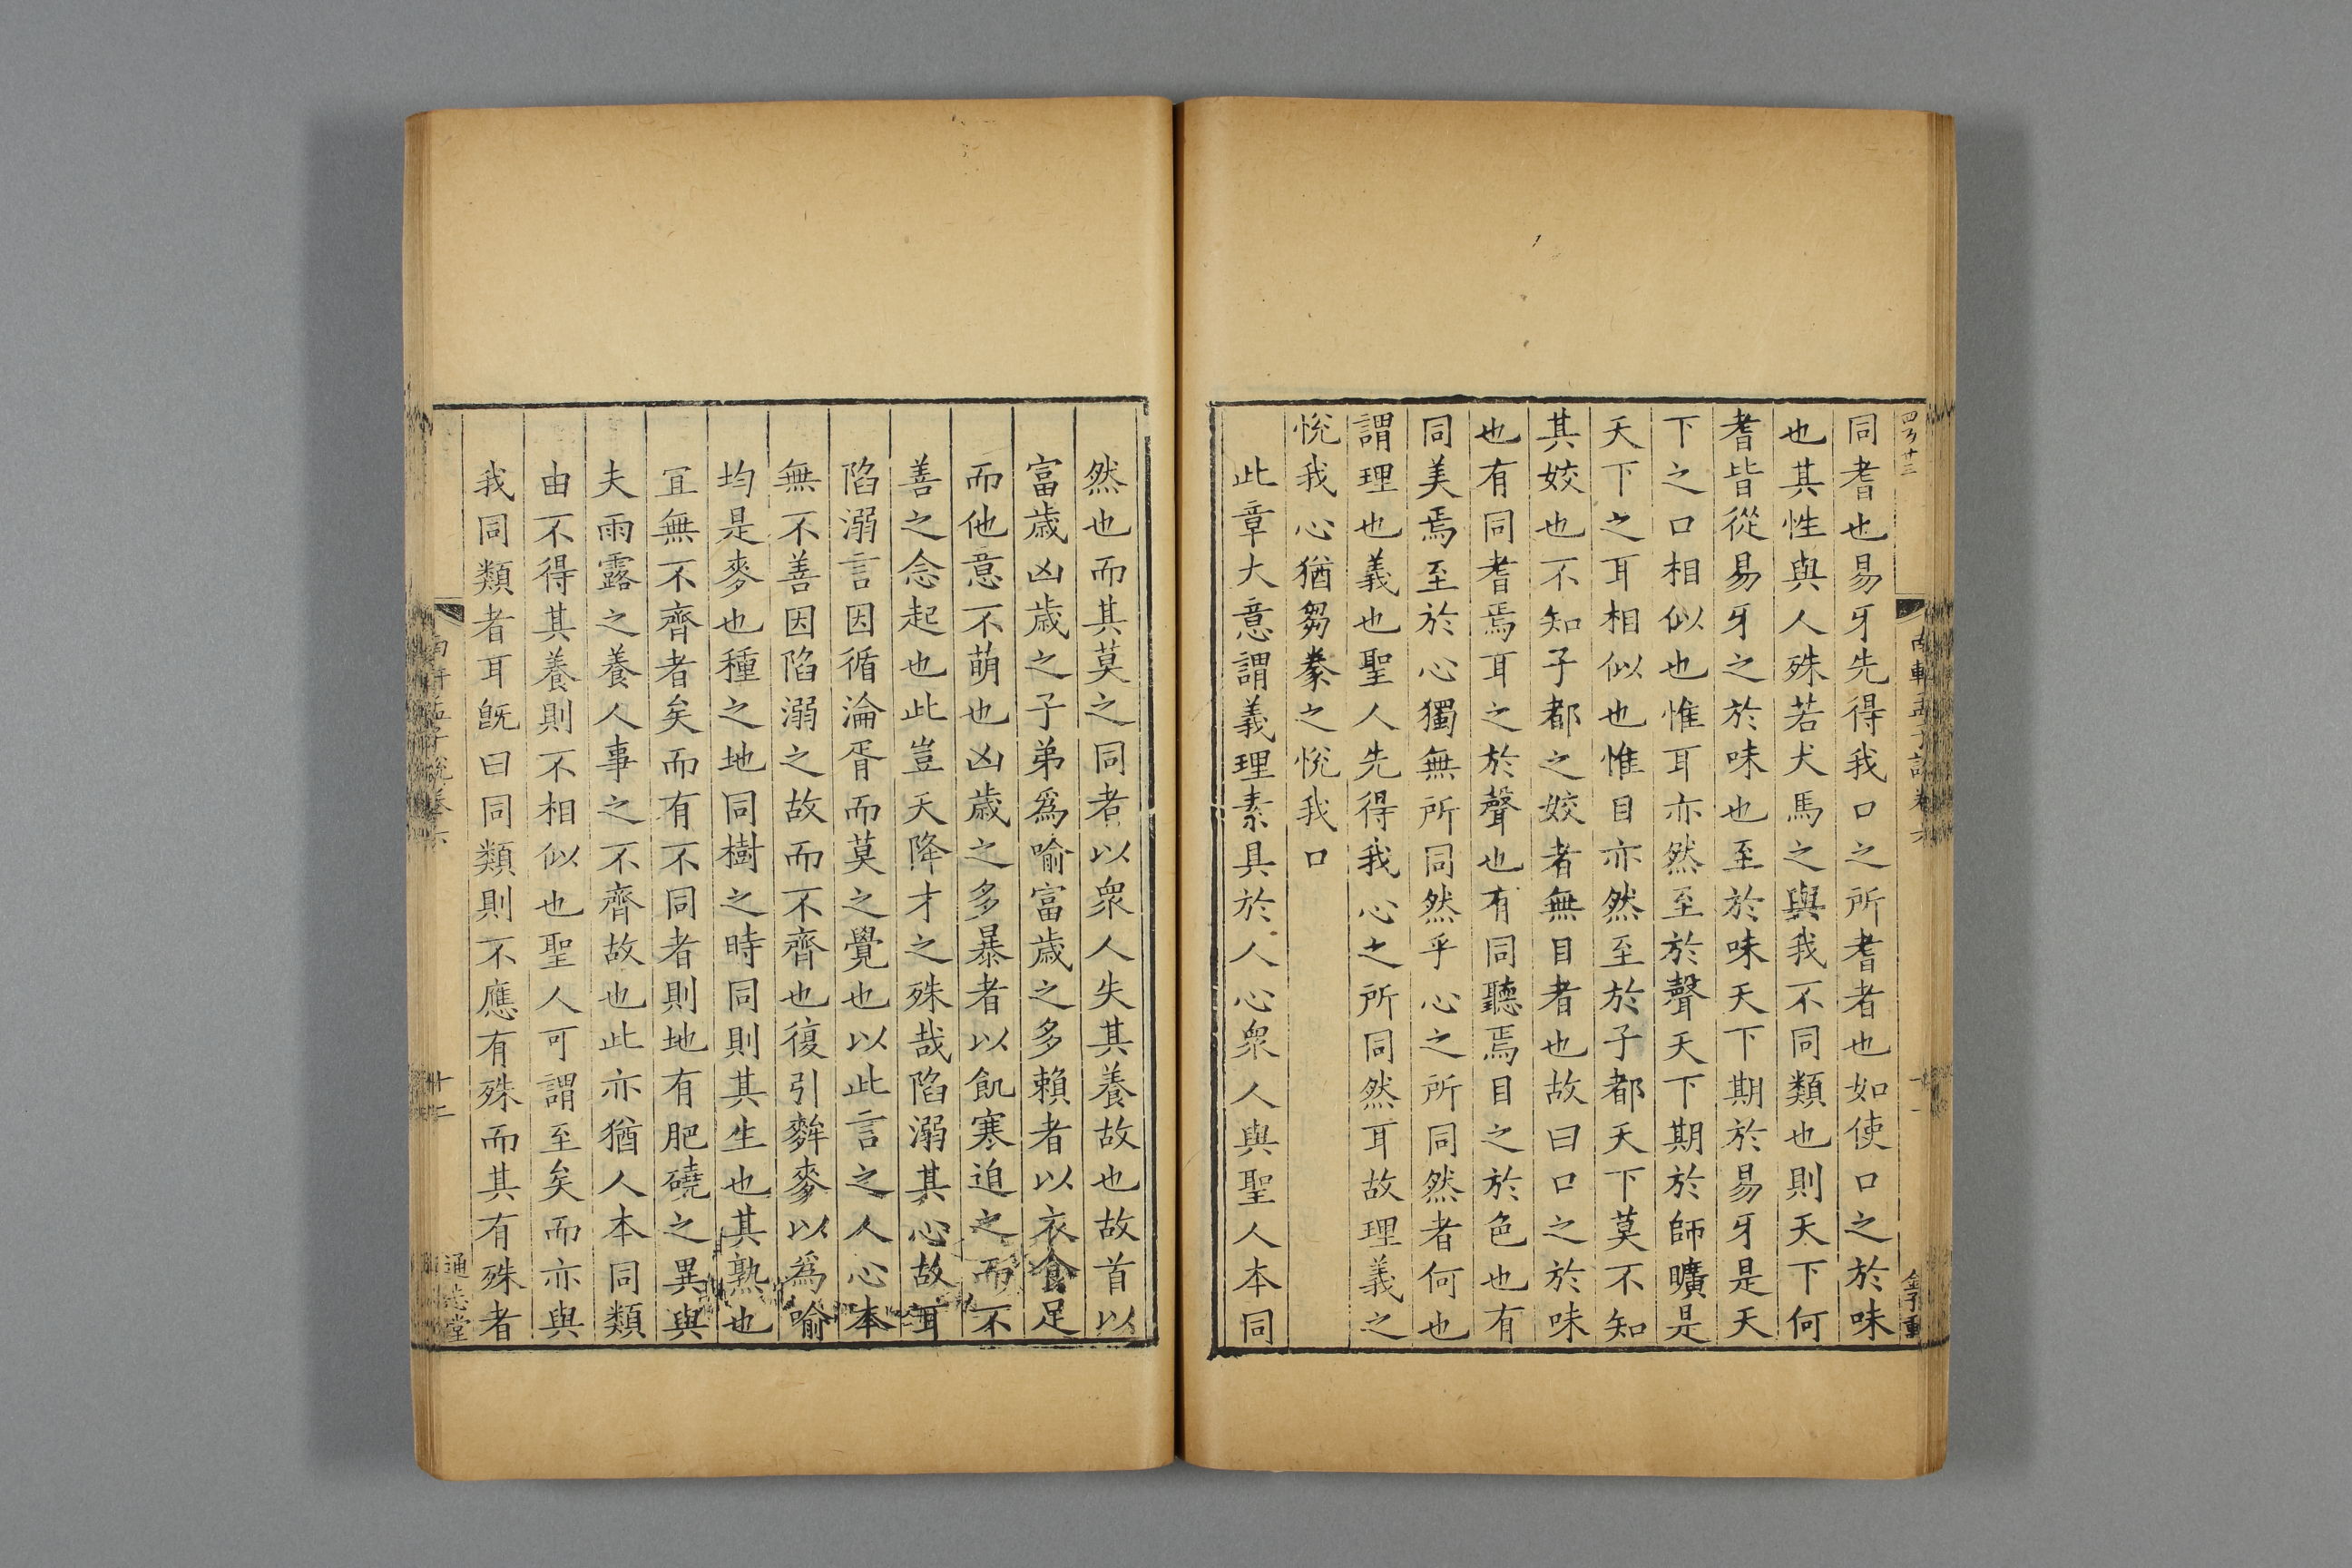 同耆也易牙先得我口之所耆者也如使口之於味
也其性與人殊若犬馬之與我不同類也則天下何
耆皆從易牙之於味也至於味天下期於易牙是天
下之口相似也惟耳亦然至於聲天下期於師曠是
天下之耳相似也惟目亦然至於子都天下莫不知
其姣也不知子都之姣者無目者也故曰口之於味
也有同耆焉耳之於聲也有同聽焉目之於色也有
同美焉至於心獨無所同然乎心之所同然者何也
謂理也義也聖人先得我心之所同然耳故理義之
悅我心猶芻豢之悅我口
此章大意謂義理素具於人心衆人與聖人本同
然也而其莫之同者以衆人失其養故也故首以
富歲凶歲之子弟爲喻富歲之多賴者以衣食足
而他意不萌也凶歲之多暴者以飢寒迫之而不
善之念起也此豈天降才之殊哉陷溺其心故耳
陷溺言因循淪胥而莫之覺也以此言之人心本
無不善因陷溺之故而不齊也復引麰麥以爲喻
均是麥也種之地同樹之時同則其生也其熟也
宜無不齊者矣而有不同者則地有肥磽之異與
夫雨露之養人事之不齊故也此亦猶人本同類
由不得其養則不相似也聖人可謂至矣而亦與
我同類者耳旣曰同類則不應有殊而其有殊者
十二
通志堂